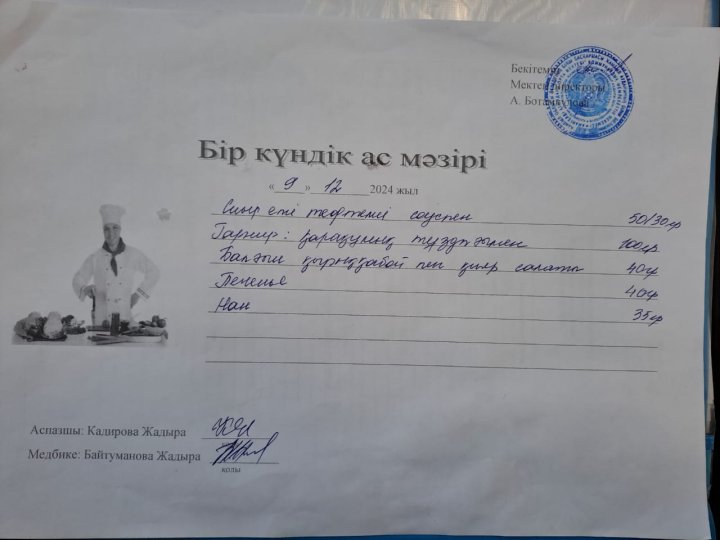 Бекітемін
Мектеп директоры
А. Ботабекова
Бір күндік ас мәзірі
« 9 » 12 2024 жыл
Сиыр еті тефтелі соуспен 50/30гр
Гарнир: қарақұмық тұздығымен 100гр
Балғын қырыққабат пен қияр салаты 40гр
Печенье 40гр
Нан 35гр
Аспазшы: Кадирова Жадыра
Медбике: Байтуманова Жадыра
қолы